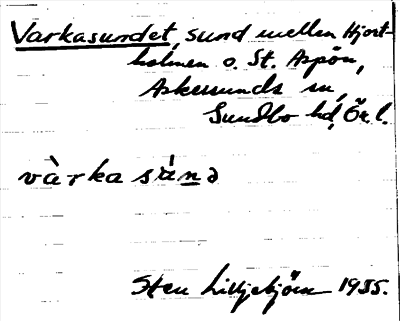 Varkasundet, sund mellan Hjort-
holmen o. St. Aspön,
Askersunds sn,
Sundbo hd, Ör. l.
vàrka sánd
Sten Liljebjörn 1935.